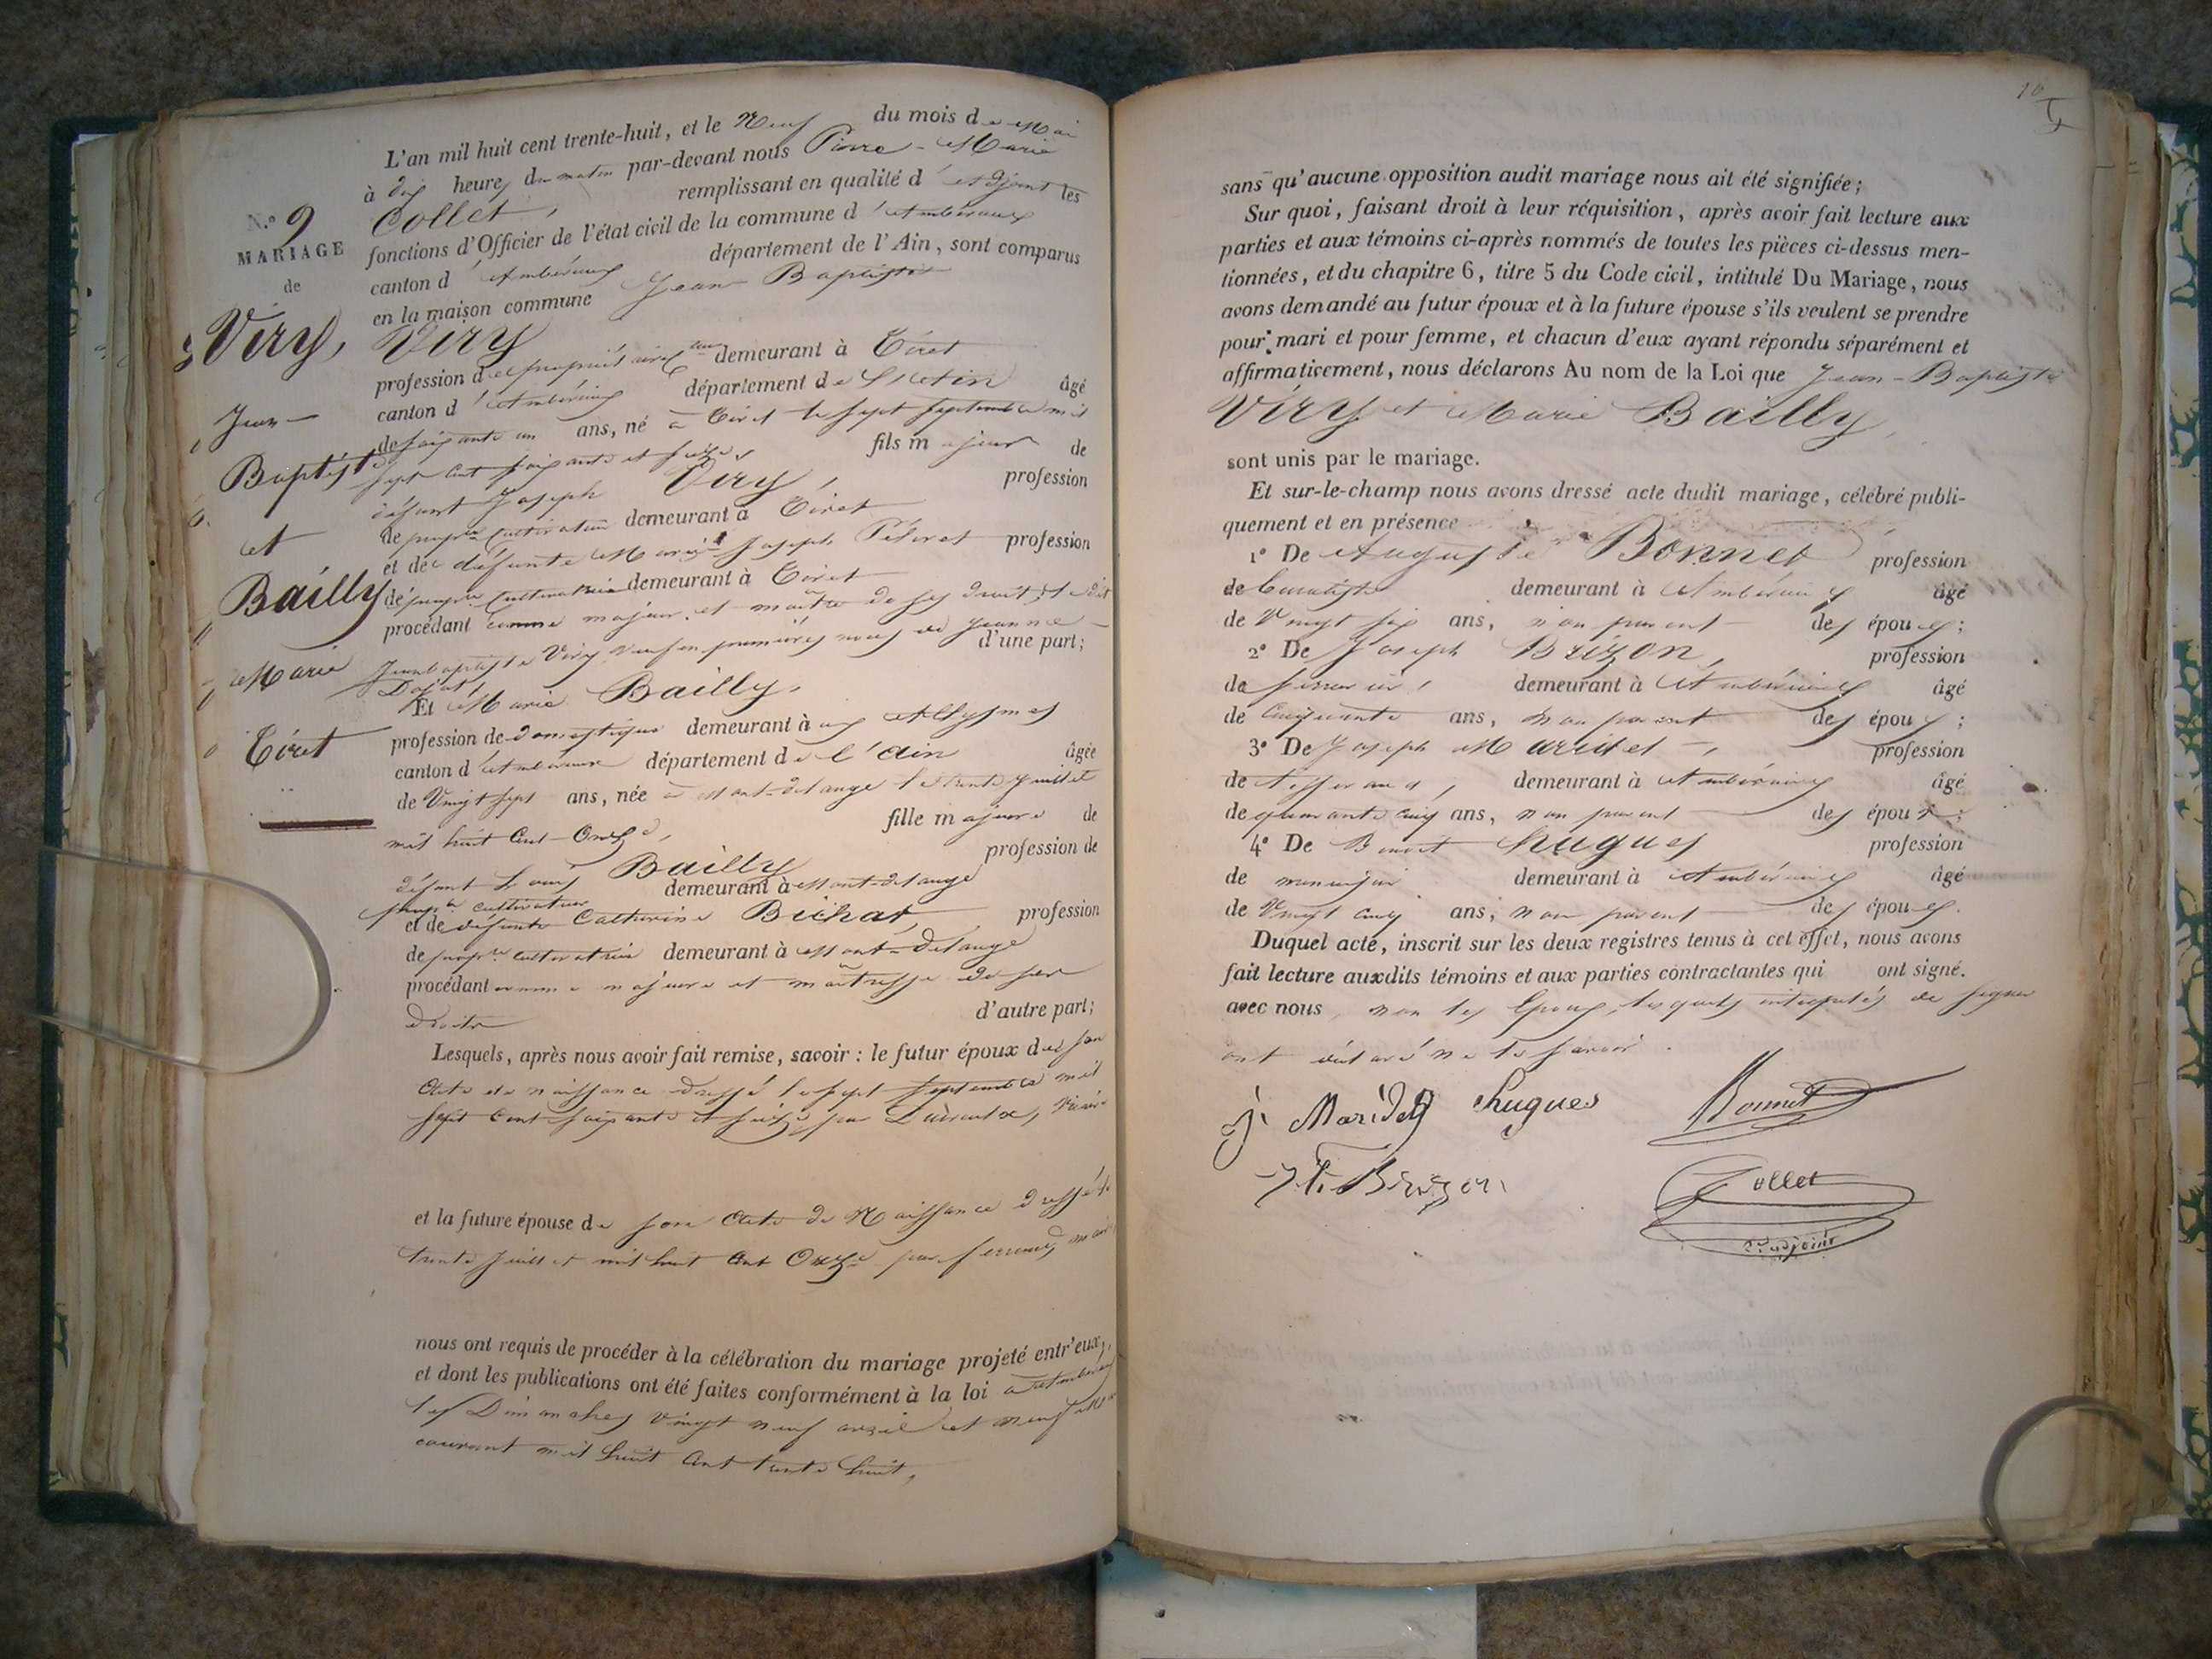 L'an mil huit cent trente-huit, et le Neuf du mois de Mai
à dix heures du matin par-devant nous Pierre-Marie
Collet, remplissant en qualité d'adjoint les
fonctions d'Officier de l'état civil de la commune d'Ambérieux
canton d'Ambérieux département de l'Ain, sont comparus
en la maison commune Jean Baptiste
Viry
profession de propriétaire demeurant à Tiret
canton d'Ambérieux département de l'Ain âgé
de soixante un ans, né à Tiret le sept septembre mil
sept cent soixante et seize, fils majeur de
défunt Joseph Viry, profession
de propre cultivateur demeurant à Tiret
et de défunte Marie Joseph profession
de propre cultivatrice demeurant à Tiret
procédant comme majeur et maître de ses droits
Jean baptiste Viry veuf en premières noces de Jeanne d'une part;
Et Marie Bailly,
profession de domestique demeurant aux Allysmes
canton d'Ambérieux département de l'Ain âgée
de Vingt sept ans, née à Mont-de-lange le trente juillet
mil huit cent Onze, fille majeure de
défunt Louis Bailly profession de
propre cultivateur demeurant à Mont-de-lange
et de défunte Catherine Bichat, profession
de propre cultivatrice demeurant à Mont-de-lange
procédant comme majeure et maîtresse de ses
droits d'autre part;
Lesquels, après nous avoir fait remise, savoir : le futur époux de son
acte de naissance dressé le sept septembre mil
sept cent soixante et seize par
et la future épouse de son acte de Naissance dressé le
trente juillet mil huit cent Onze par maire
nous ont requis de procéder à la célébration du mariage projeté entr'eux,
et dont les publications ont été faites conformément à la loi à Ambérieux
les Dimanches vingt neuf avril et
courant mil huit cent trente huit,
N.º 9
MARIAGE
de
Viry,
Jean-
Baptiste
et
Bailly
Marie
Tiret
10
sans qu'aucune opposition audit mariage nous ait été signifiée;
Sur quoi, faisant droit à leur réquisition, après avoir fait lecture aux
parties et aux témoins ci-après nommés de toutes les pièces ci-dessus men-
tionnées, et du chapitre 6, titre 5 du Code civil, intitulé Du Mariage, nous
avons demandé au futur époux et à la future épouse s'ils veulent se prendre
pour mari et pour femme, et chacun d'eux ayant répondu séparément et
affirmativement, nous déclarons Au nom de la Loi que Jean-Baptiste
Viry et Marie Bailly,
sont unis par le mariage.
Et sur-le-champ nous avons dressé acte dudit mariage, célébré publi-
quement et en présence
1º De Auguste Bonnet profession
de demeurant à Ambérieux âgé
de Vingt six ans, non parent des époux;
2º De Joseph Brizon, profession
de serrurier, demeurant à Ambérieux âgé
de cinquante ans, non parent des époux;
3º De Joseph Maridet, profession
de tisserand, demeurant à Ambérieux âgé
de quarante cinq ans, non parent des époux;
4º De Benoit hugues profession
de menuisier demeurant à Ambérieux âgé
de Vingt cinq ans, non parent des époux.
Duquel acte, inscrit sur les deux registres tenus à cet effet, nous avons
fait lecture auxdits témoins et aux parties contractantes qui ont signé.
avec nous, non les Epoux, lesquels interpellés de signer
ont déclaré ne le savoir.
J. Maridet hugues Bonnet
Brizon Collet
adjoint